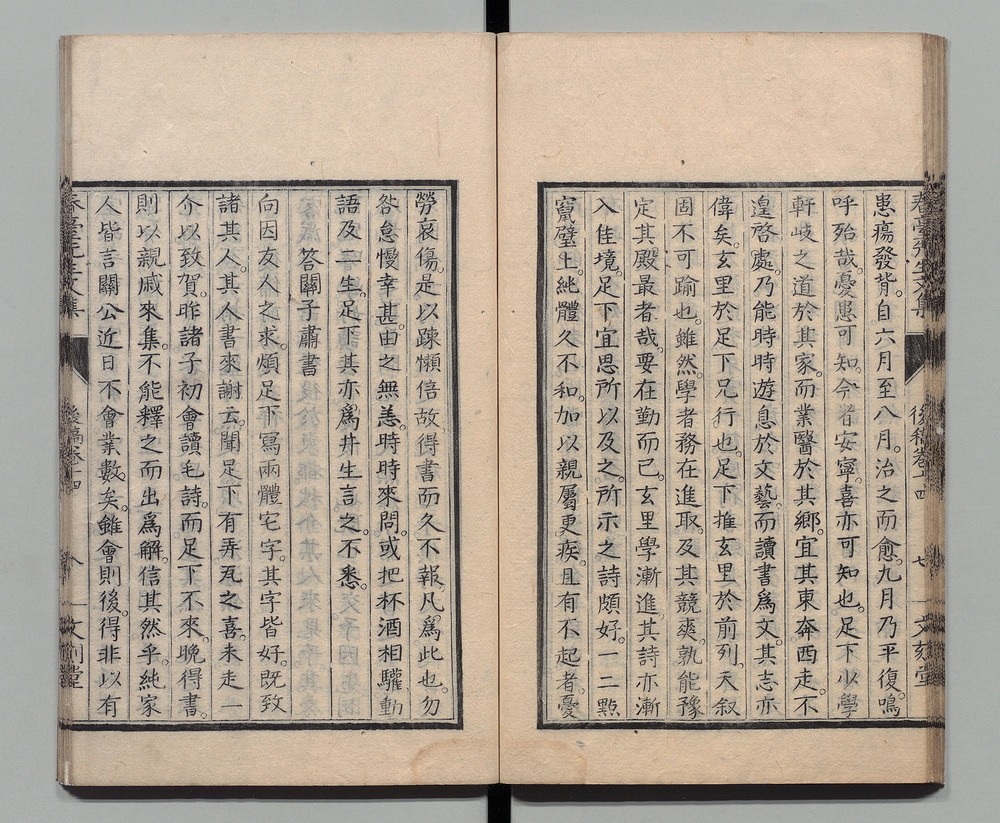 春臺先生文集 後稿卷十四 七 文刻堂
患瘍發背。自六月至八月。治之而愈。九月乃平復。鳴
呼殆哉。憂患可知。今者安寧。喜亦可知也。足下少學
軒岐之道於其家。而業醫於其鄉。宜其東奔西走。不
遑啓處。乃能時時遊息於文藝。而讀書爲文。其志亦
偉矣。玄里於足下兄行也。足下推玄里於前列。天叙
固不可踰也。雖然。學者務在進取。及其競爽。孰能豫
定其殿最者哉。要在勤而已。玄里學漸進。其詩亦漸
入佳境。足下宜思所以及之。所示之詩頗好。一二點
竄璧上。純體久不和。加以親屬更疾。且有不起者。憂
勞哀傷。是以疎懶倍故。得書而久不報。凡爲此也。勿
咎怠慢幸甚。由之無恙。時時來問。或把杯酒相驩。動
語及二生。足下其亦爲井生言之。不悉。
答關子肅書
向因友人之求。煩足下寫兩體宅字。其字皆好。既致
諸其人。其人書來謝云。聞足下有弄瓦之喜。未走一
介以致賀。昨諸子初會讀毛詩。而足下不來。晚得書。
則以親戚來集。不能釋之而出爲解。信其然乎。純家
人皆言關公近日不會業數矣。雖會則後。得非以有
春臺先生文集 後稿卷十四 八 文刻堂